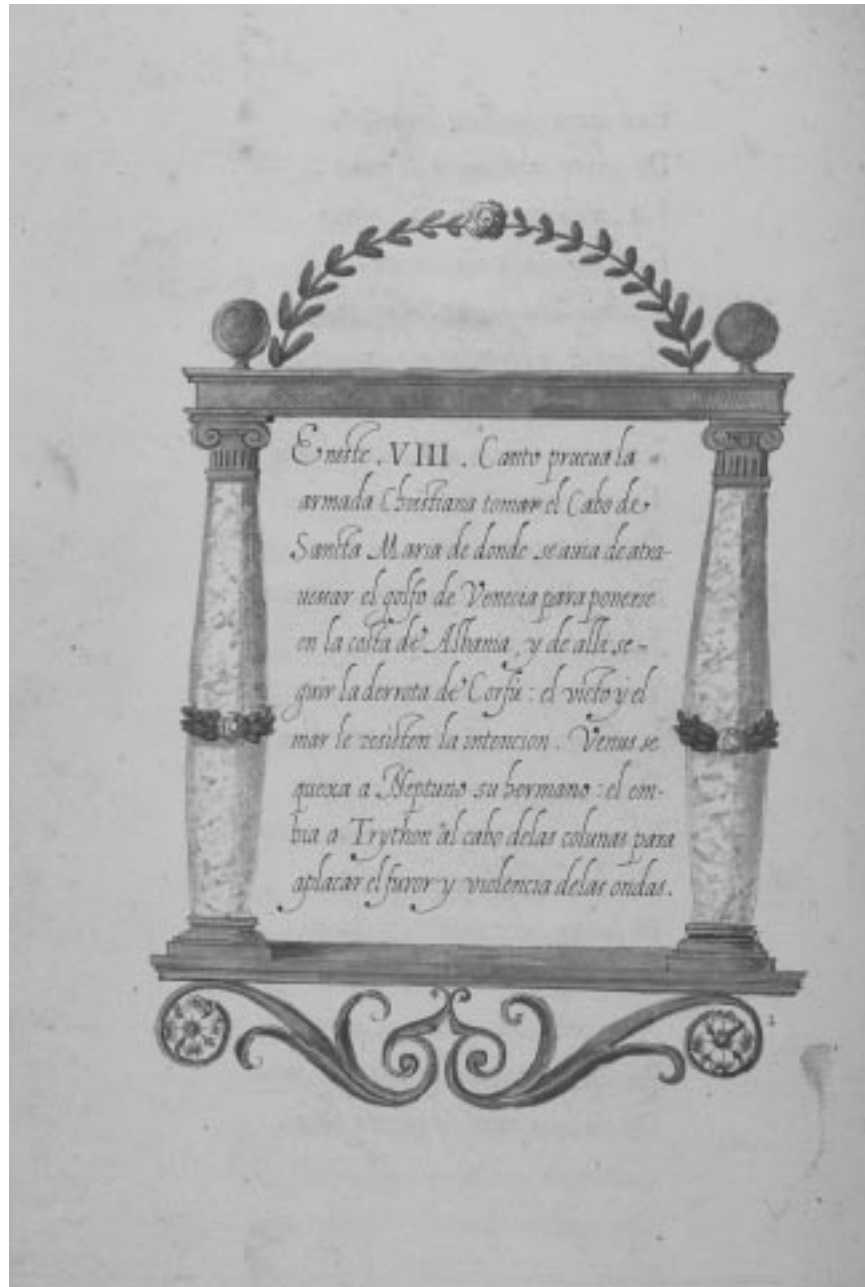 Eneste . VIII . Canto prucua la
armada Christiana tomar el Cabo de
Sancta Maria de donde se auia de atra-
uessar el golfo de Venecia para ponerse
en la costa de Albania, y de alle se-
guir la derrota de Corfú : el viẽto y el
mar le resisten la intencion . Venus se
quexa a Neptuno su hermano : el em-
bia a Trython al cabo delas colunas para
aplacar el furor y violencia delas ondas .